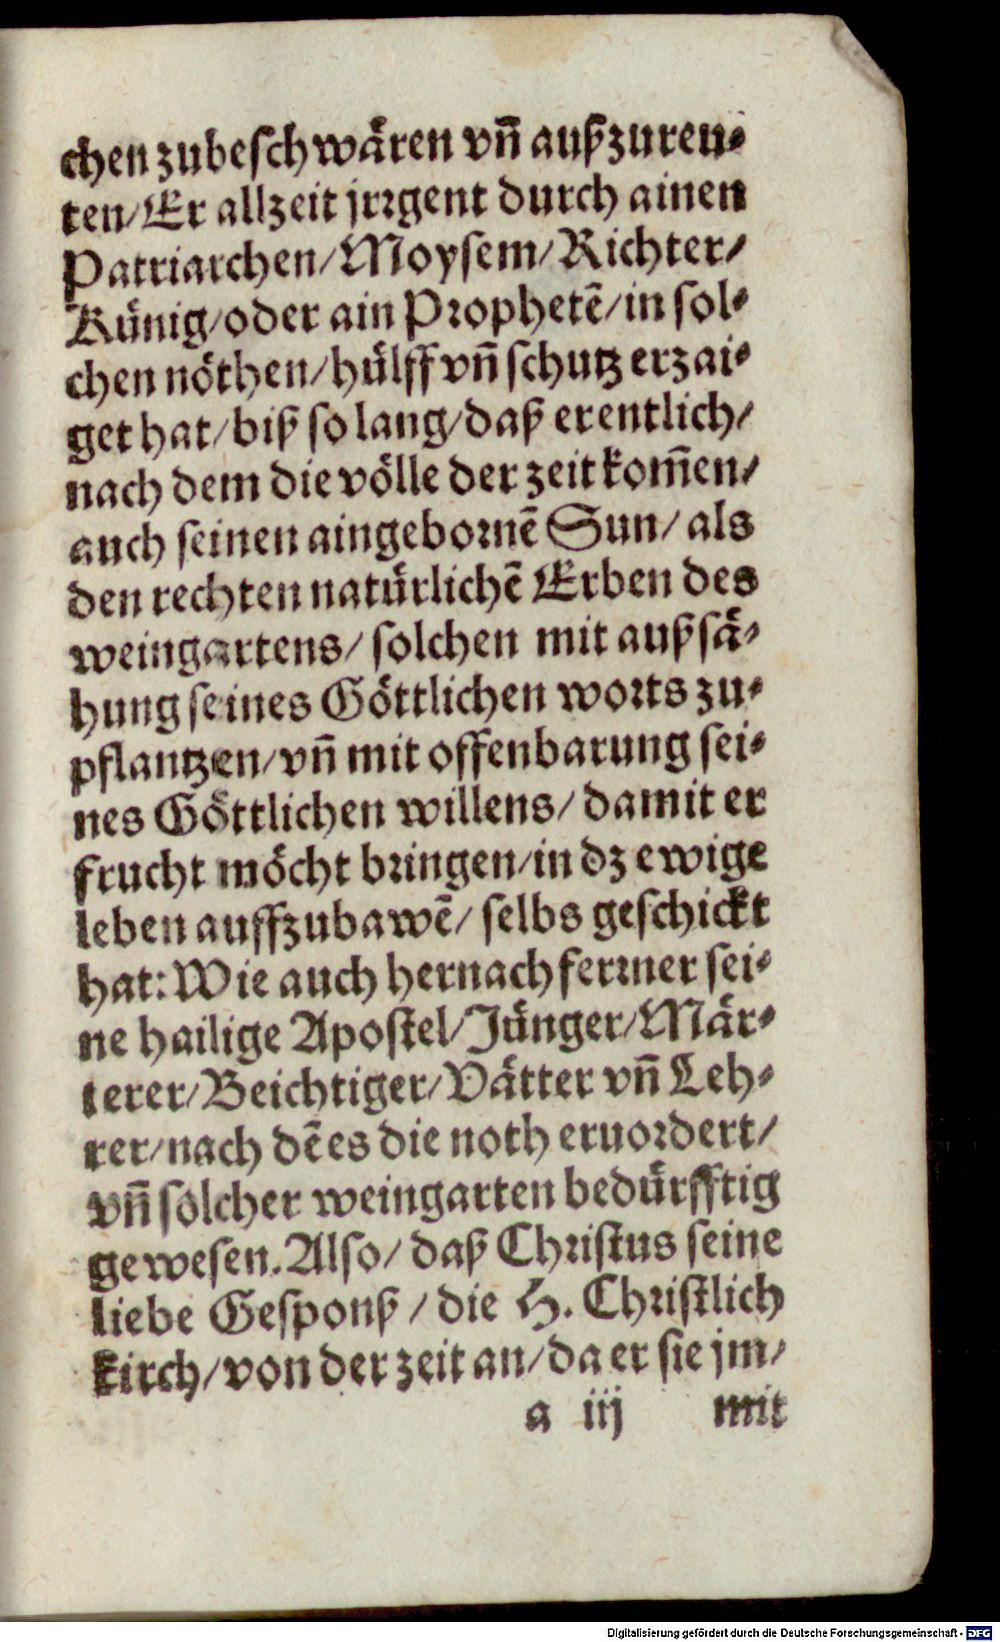 chen zubeschwären vñ außzureu⸗
ten/ Er allzeit jrꝛgent durch ainen
Patriarchen/ Moysem/ Richter/
Künig/ oder ain Prophetē/ in sol⸗
chen nöthen/ hülff vñ schutz erzai⸗
get hat/ biß so lang/ daß er entlich/
nach dem die völle der zeit kom̃en/
auch seinen aingebornē Sun/ als
den rechten natürlichē Erben des
weingartens/ solchen mit außsä⸗
hung seines Göttlichen worts zu⸗
pflantzen/ vñ mit offenbarung sei⸗
nes Göttlichen willens/ damit er
frucht möcht bringen/ in dz ewige
leben auffzubawē/ selbs geschickt
hat: Wie auch hernach ferꝛner sei⸗
ne hailige Apostel/ Jünger/ Mär⸗
terer/ Beichtiger/ Vätter vñ Leh⸗
rer/ nach dē es die noth eruordert/
vñ solcher weingarten bedürfftig
gewesen. Also/ daß Christus seine
liebe Gesponß / die H. Christlich
kirch/ von der zeit an/ da er sie jm/
a iij mit
Digitalisierung gefördert durch die Deutsche Forschungsgemeinschaft - DFG